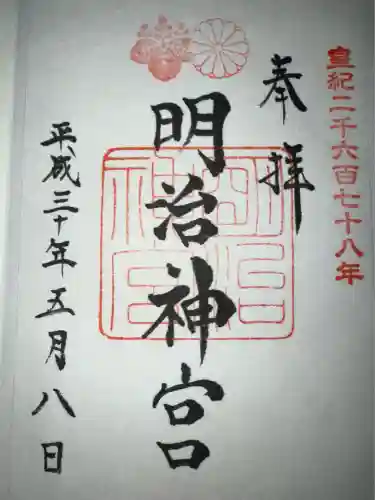 皇紀二千六百七十八年
奉拝
明治神宮
平成三十年五月八日
明治神宮